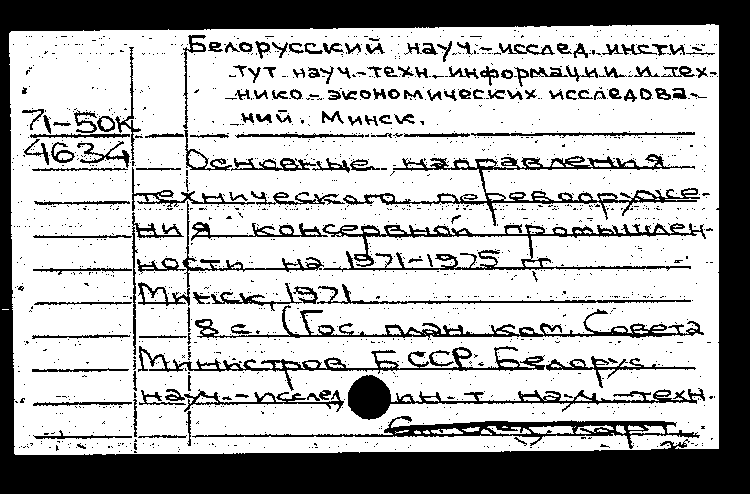 Белорусский науч.-исслед. инсти-
тут науч.-техн. информации и тех-
нико-экономических исследова-
ний. Минск.
71-50к
4634
Основные направления
технического перевооруже-
ния консервной промышлен-
ности на 1971-1975 гг
Минск, 1971.
8 с. (Гос. план. ком. Совета
Министров БССР. Белорус.
науч.-исслед ин-т науч.-техн.
См. след. карт.